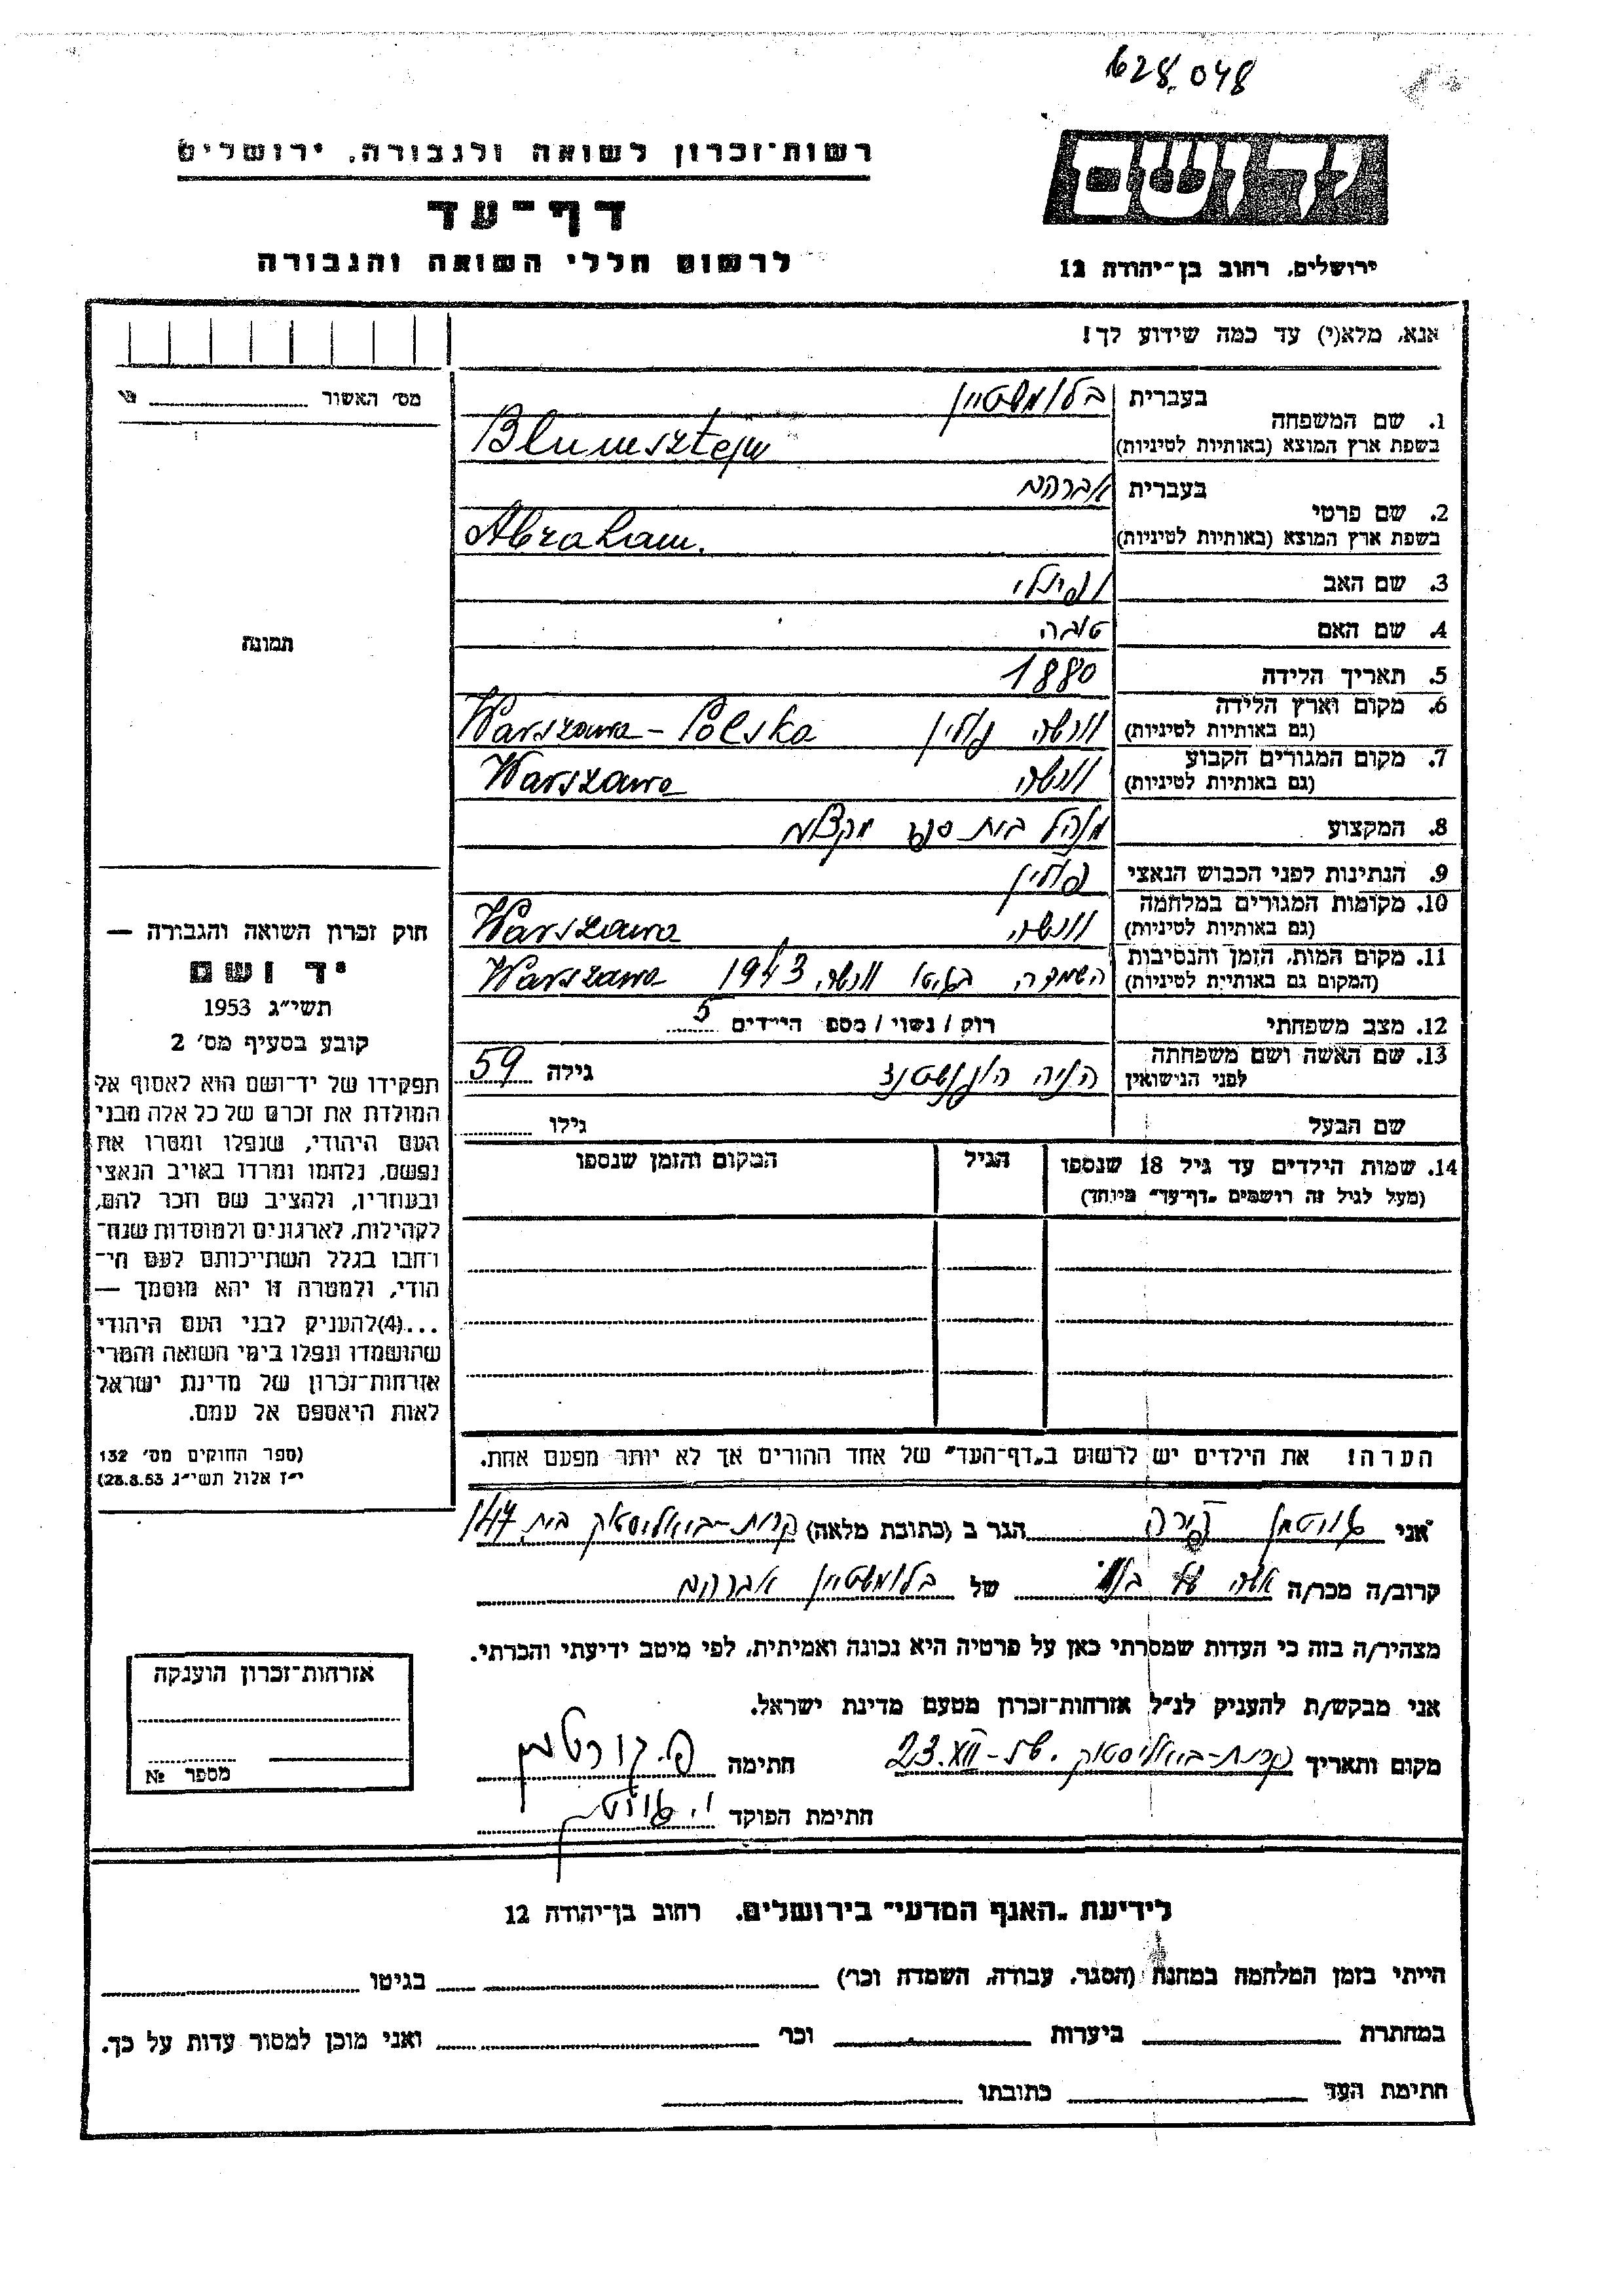 628.048
יד ושם
ירושלים, רחוב בן־יהודה 12
רשות־זכרון לשואה ולגבורה, ירושלים
דף־עד
לרשום חללי השואה והגבורה
אנא, מלא(י) עד כמה שידוע לך!
מס׳ האשור
תמונה
חוק זכרון השואה והגבורה —
יד ושם
תשי״ג 1953
קובע בסעיף מס׳ 2
תפקידו של יד־ושם הוא לאסוף אל
המולדת את זכרם של כל אלה מבני
העם היהודי, שנפלו ומסרו את
נפשם, נלחמו ומרדו באויב הנאצי
ובעוזריו, ולהציב שם וזכר להם,
לקהילות, לארגונים ולמוסדות שנח־
רחבו בגלל השתייכותם לעם הי־
הודי, ולמטרה זו יהא מוסמך —
...(4)להעניק לבני העם היהודי
שהושמדו ונפלו בימי השואה והמרי
אזרחות־זכרון של מדינת ישראל
לאות היאספם אל עמם.
(ספר החוקים מס׳ 132
י״ז אלול תשי״ג 28.8.53)
1. שם המשפחה
בעברית בלומשטיין
בשפת ארץ המוצא (באותיות לטיניות) Blumsztejn
2. שם פרטי
בעברית אברהם
בשפת ארץ המוצא (באותיות לטיניות) Abraham.
3. שם האב
4. שם האם טובה
5. תאריך הלידה 1880
6. מקום וארץ הלידה
(גם באותיות לטיניות) וורשה פולין Warszawa – Polska
7. מקום המגורים הקבוע
(גם באותיות לטיניות) וורשה Warszawa
8. המקצוע מנהל בית ספר מקצועי
9. הנתינות לפני הכבוש הנאצי פולין
10. מקומות המגורים במלחמה
(גם באותיות לטיניות) וורשה Warszawa
11. מקום המות, הזמן והנסיבות
(המקום גם באותיית לטיניות) השמדה בגיטו וורשה 1943 Warszawa
12. מצב משפחתי רוק / נשוי / מספ הילדים 5
13. שם האשה ושם משפחתה
לפני הנישואין גילה 59
שם הבעל גילו
14. שמות הילדים עד גיל 18 שנספו הגיל המקום והזמן שנספו
(מעל לגיל זה רושמים „דף־עד״ מיוחד)
הערה! את הילדים יש לרשום ב„דף־העד״ של אחד ההורים אך לא יותר מפעם אחת.
אני גוטמן הגר ב (כתובת מלאה) קרית-ביאליסטוק בית 147
קרוב/ה מכר/ה אשה של של בלומשטיין אברהם
מצהיר/ה בזה כי העדות שמסרתי כאן על פרטיה היא נכונה ואמיתית, לפי מיטב ידיעתי והכרתי.
אני מבקש/ת להעניק לנ״ל אזרחות־זכרון מטעם מדינת ישראל.
מקום ותאריך קרית-ביאליסטוק 23.XII חתימה
חתימת הפוקד
אזרחות־זכרון הוענקה
מספר №
לידיעת „האגף המדעי״ בירושלים, רחוב בן־יהודה 12
הייתי בזמן המלחמה במחנה (הסגר, עבודה, השמדה וכר׳) בגיטו
במחתרת ביערות וכר׳ ואני מוכן למסור עדות על כך.
חתימת העד כתובתו